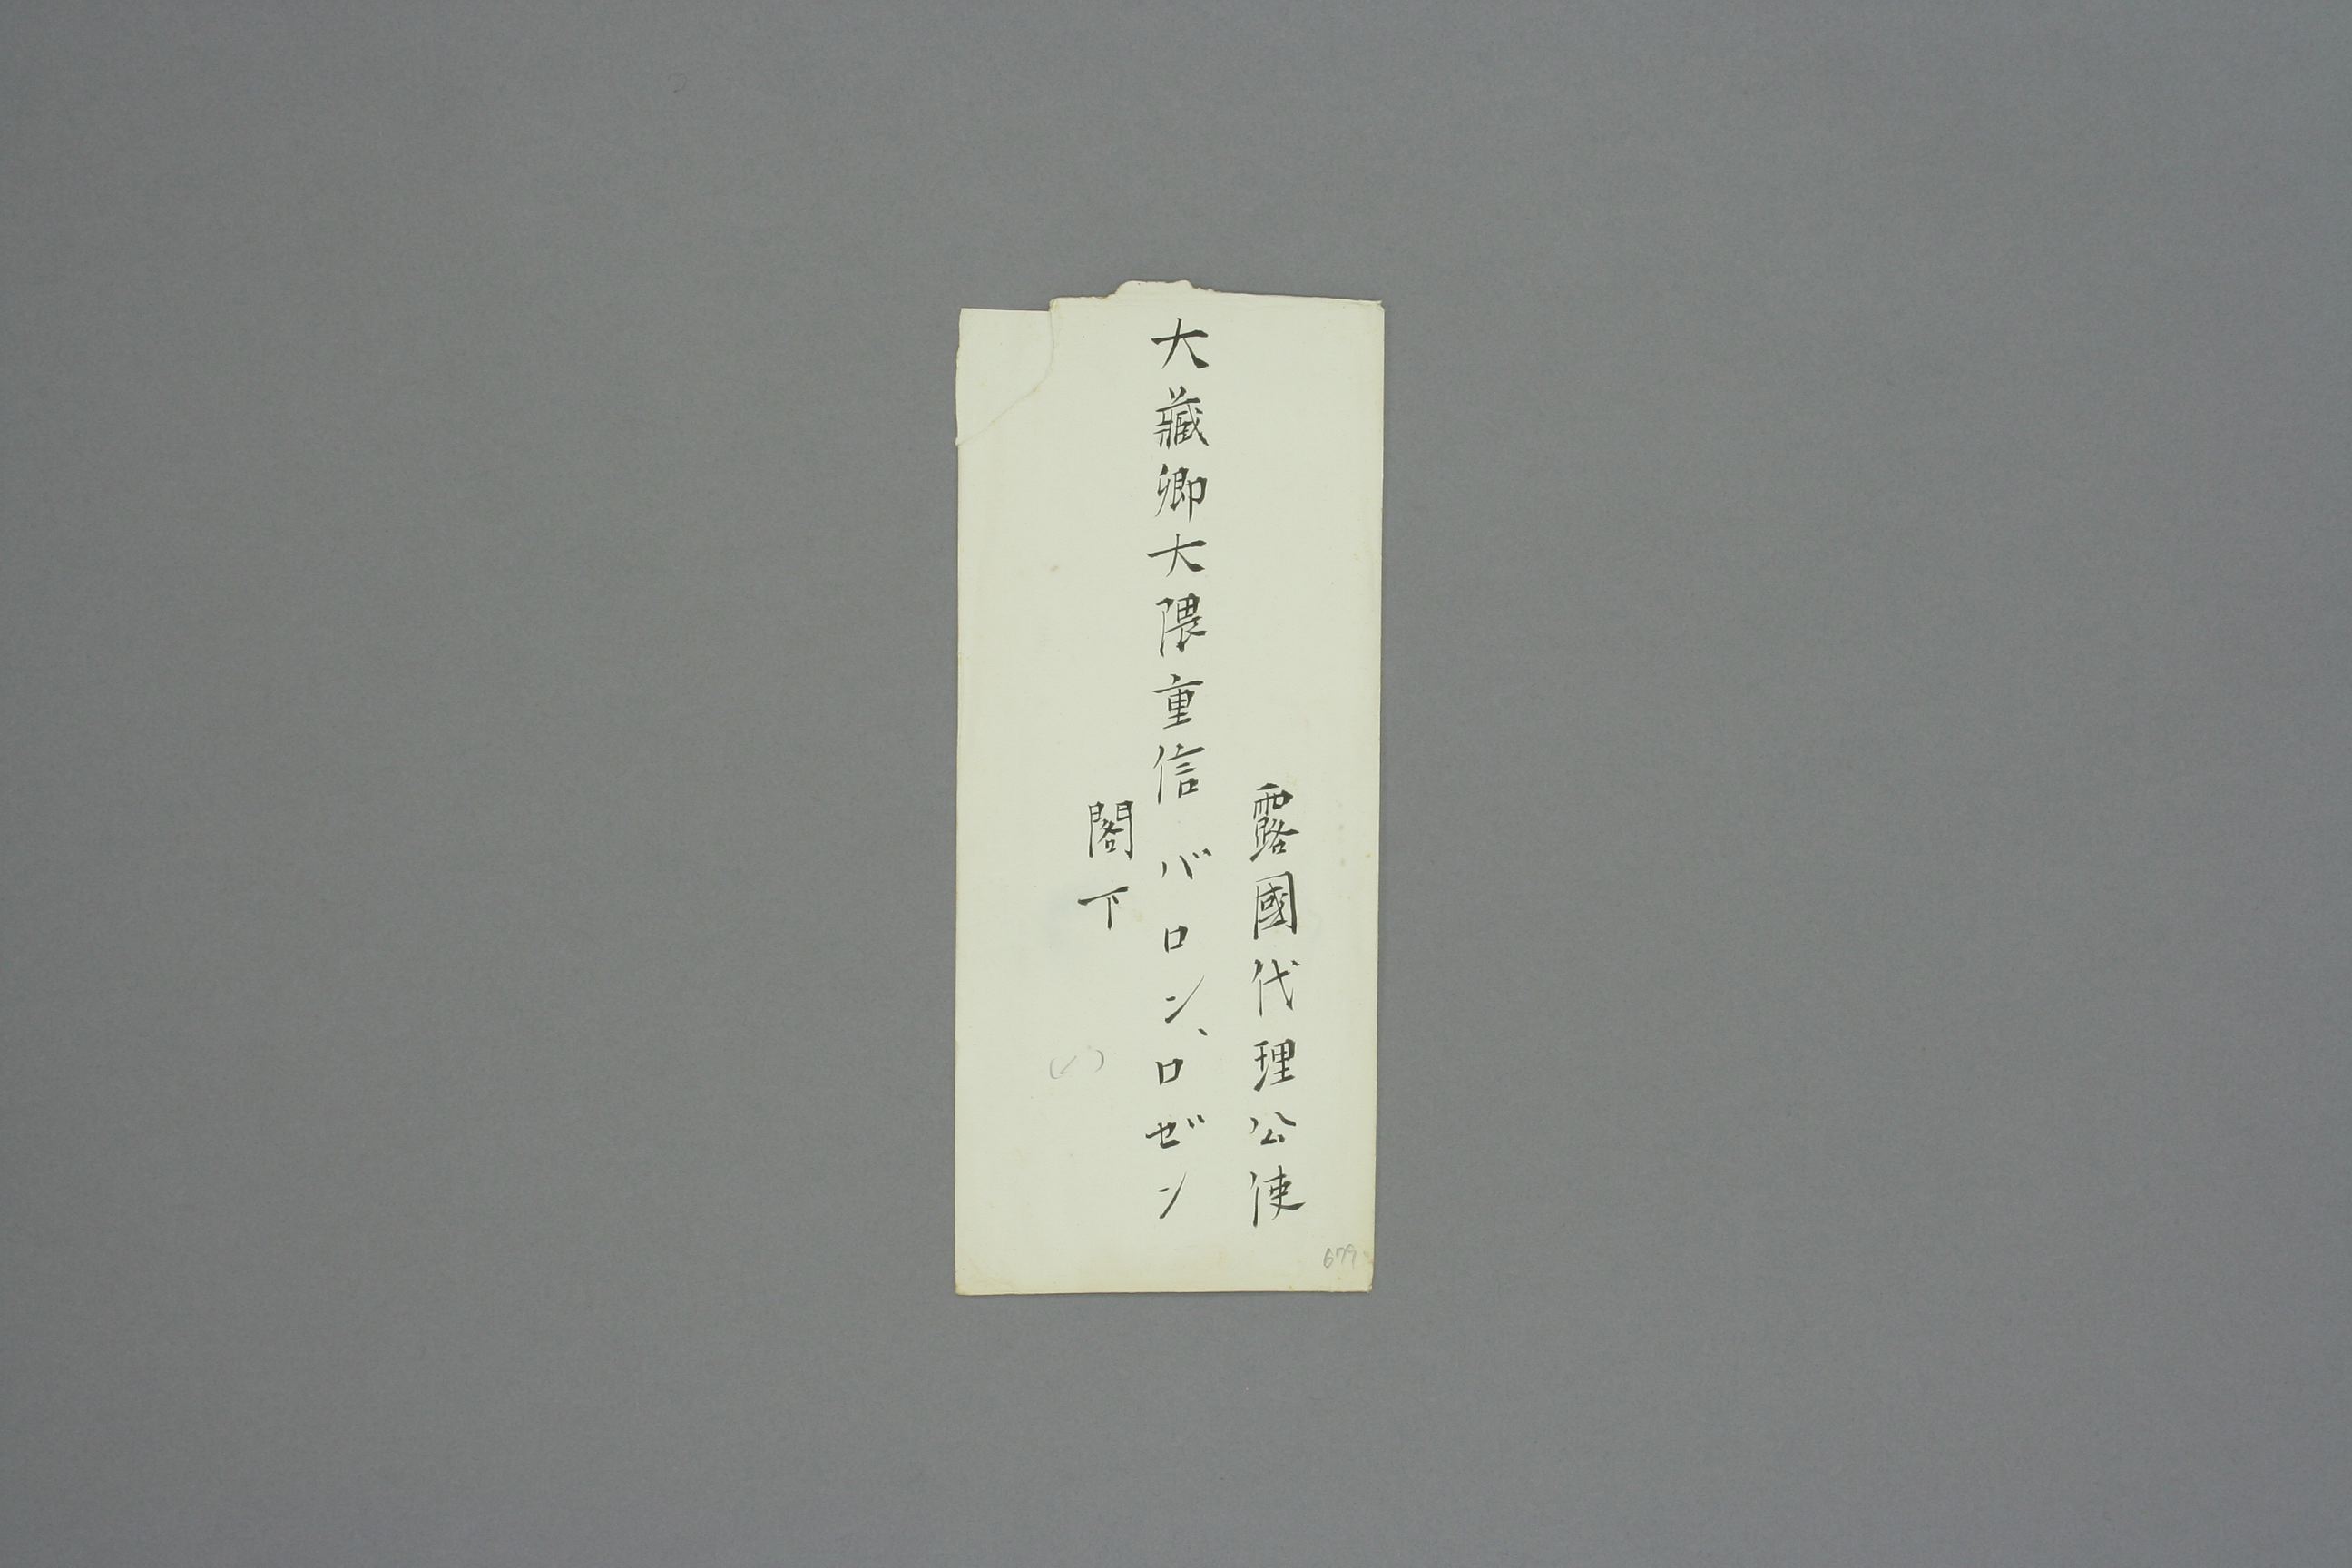 露國代理公使
大藏卿大隈重信
バロン、ロゼン
閣下
679